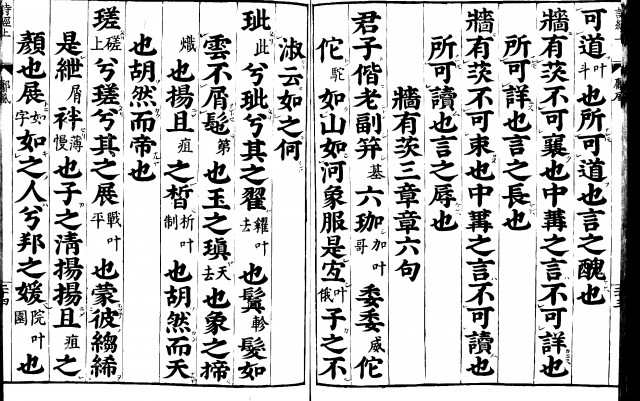 可道叶斗也所可道也言之醜也
牆有茨不可襄也中冓之言不可詳也
所可詳也言之長也
牆有茨不可束也中冓之言不可讀也
所可讀也言之辱也
牆有茨三章章六句
君子偕老副笄六珈叶加哥委委威佗
佗駝如山如河象服是宜叶俄子之不
淑云如之何
玼此兮玼兮其之翟叶糴去也鬒軫髮如
雲不屑髢第也玉之瑱天去也象之揥
也揚且疽之晳叶析制也胡然而天
也胡然而帝也
瑳磋上兮瑳兮其之展叶戰平也蒙彼縐絺
是紲屑袢薄慢也子之清揚揚且疽之
顏也展如字如之人兮邦之媛叶院園也